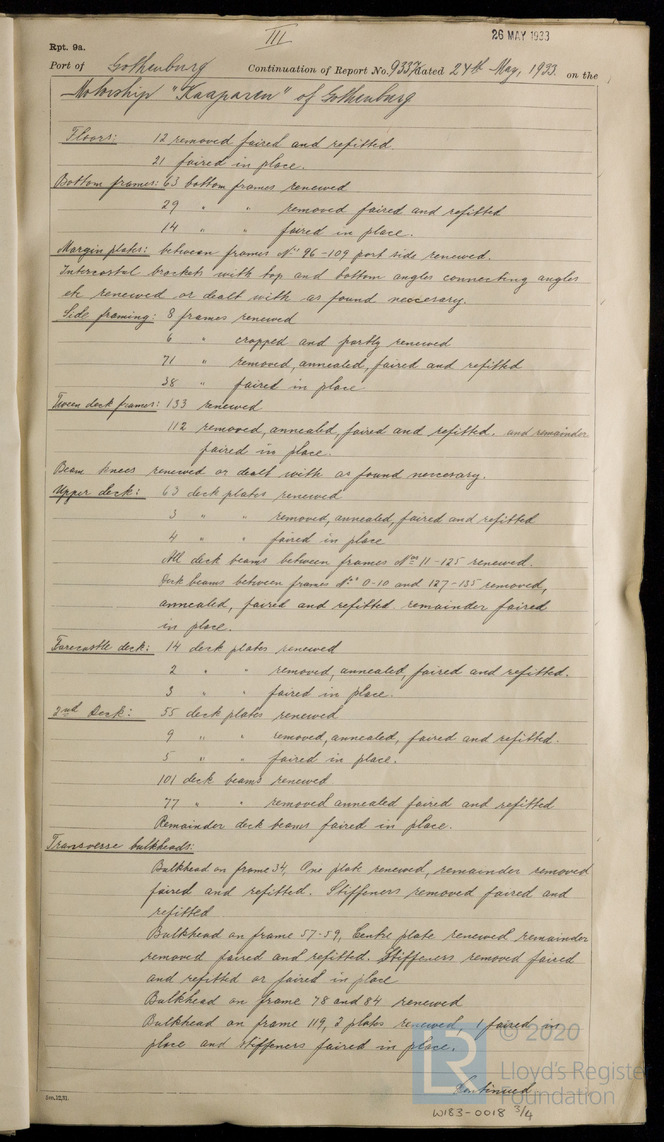 III
26 MAY 1933
Rpt. 9a.
Port of Gothenburg Continuation of Report No. 9337 dated 24th May, 1933. on the
Motorship "Kaaparen" of Gothenburg
Floors: 12 removed faired and refitted.
21 faired in place.
Bottom frames: 63 bottom frames renewed
29 " " removed faired and refitted
14 " " faired in place.
Margin plates: between frames No 96-109 port side renewed.
Intercostal brackets with top and bottom angles connecting angles
etc renewed or dealt with as found neccesary.
Side framing: 8 frames renewed
6 " cropped and partly renewed
71 " removed, annealed, faired and refitted
38 " faired in place.
Tween deck frames: 133 renewed
112 removed, annealed, faired and refitted. and remainder
faired in place.
Beam knees renewed or dealt with as found neccesary.
Upper deck: 63 deck plates renewed
3 " " removed, annealed, faired and refitted
4 " " faired in place
All deck beams between frames Nos 11-125 renewed.
Deck beams between frames Nos 0-10 and 127-135 removed,
annealed, faired and refitted. remainder faired
in place.
Forecastle deck: 14 deck plates renewed
2 " " removed, annealed, faired and refitted.
3 " " faired in place.
2nd Deck: 55 deck plates renewed
9 " " removed, annealed, faired and refitted.
5 " " faired in place.
101 deck beams renewed
77 " " removed annealed faired and refitted
Remainder deck beams faired in place.
Transverse bulkheads:
Bulkhead on frame 34, One plate renewed, remainder removed
faired and refitted. Stiffeners removed faired and
refitted
Bulkhead on frame 57-59, Centre plate renewed remainder
removed faired and refitted. Stiffeners removed faired
and refitted or faired in place
Bulkhead on frame 78 and 84 renewed
Bulkhead on frame 119, 2 plates renewed, 1 faired in
place and stiffeners faired in place.
Continued
© 2020
Lloyd's Register
Foundation
LR
W183-0018 3/4